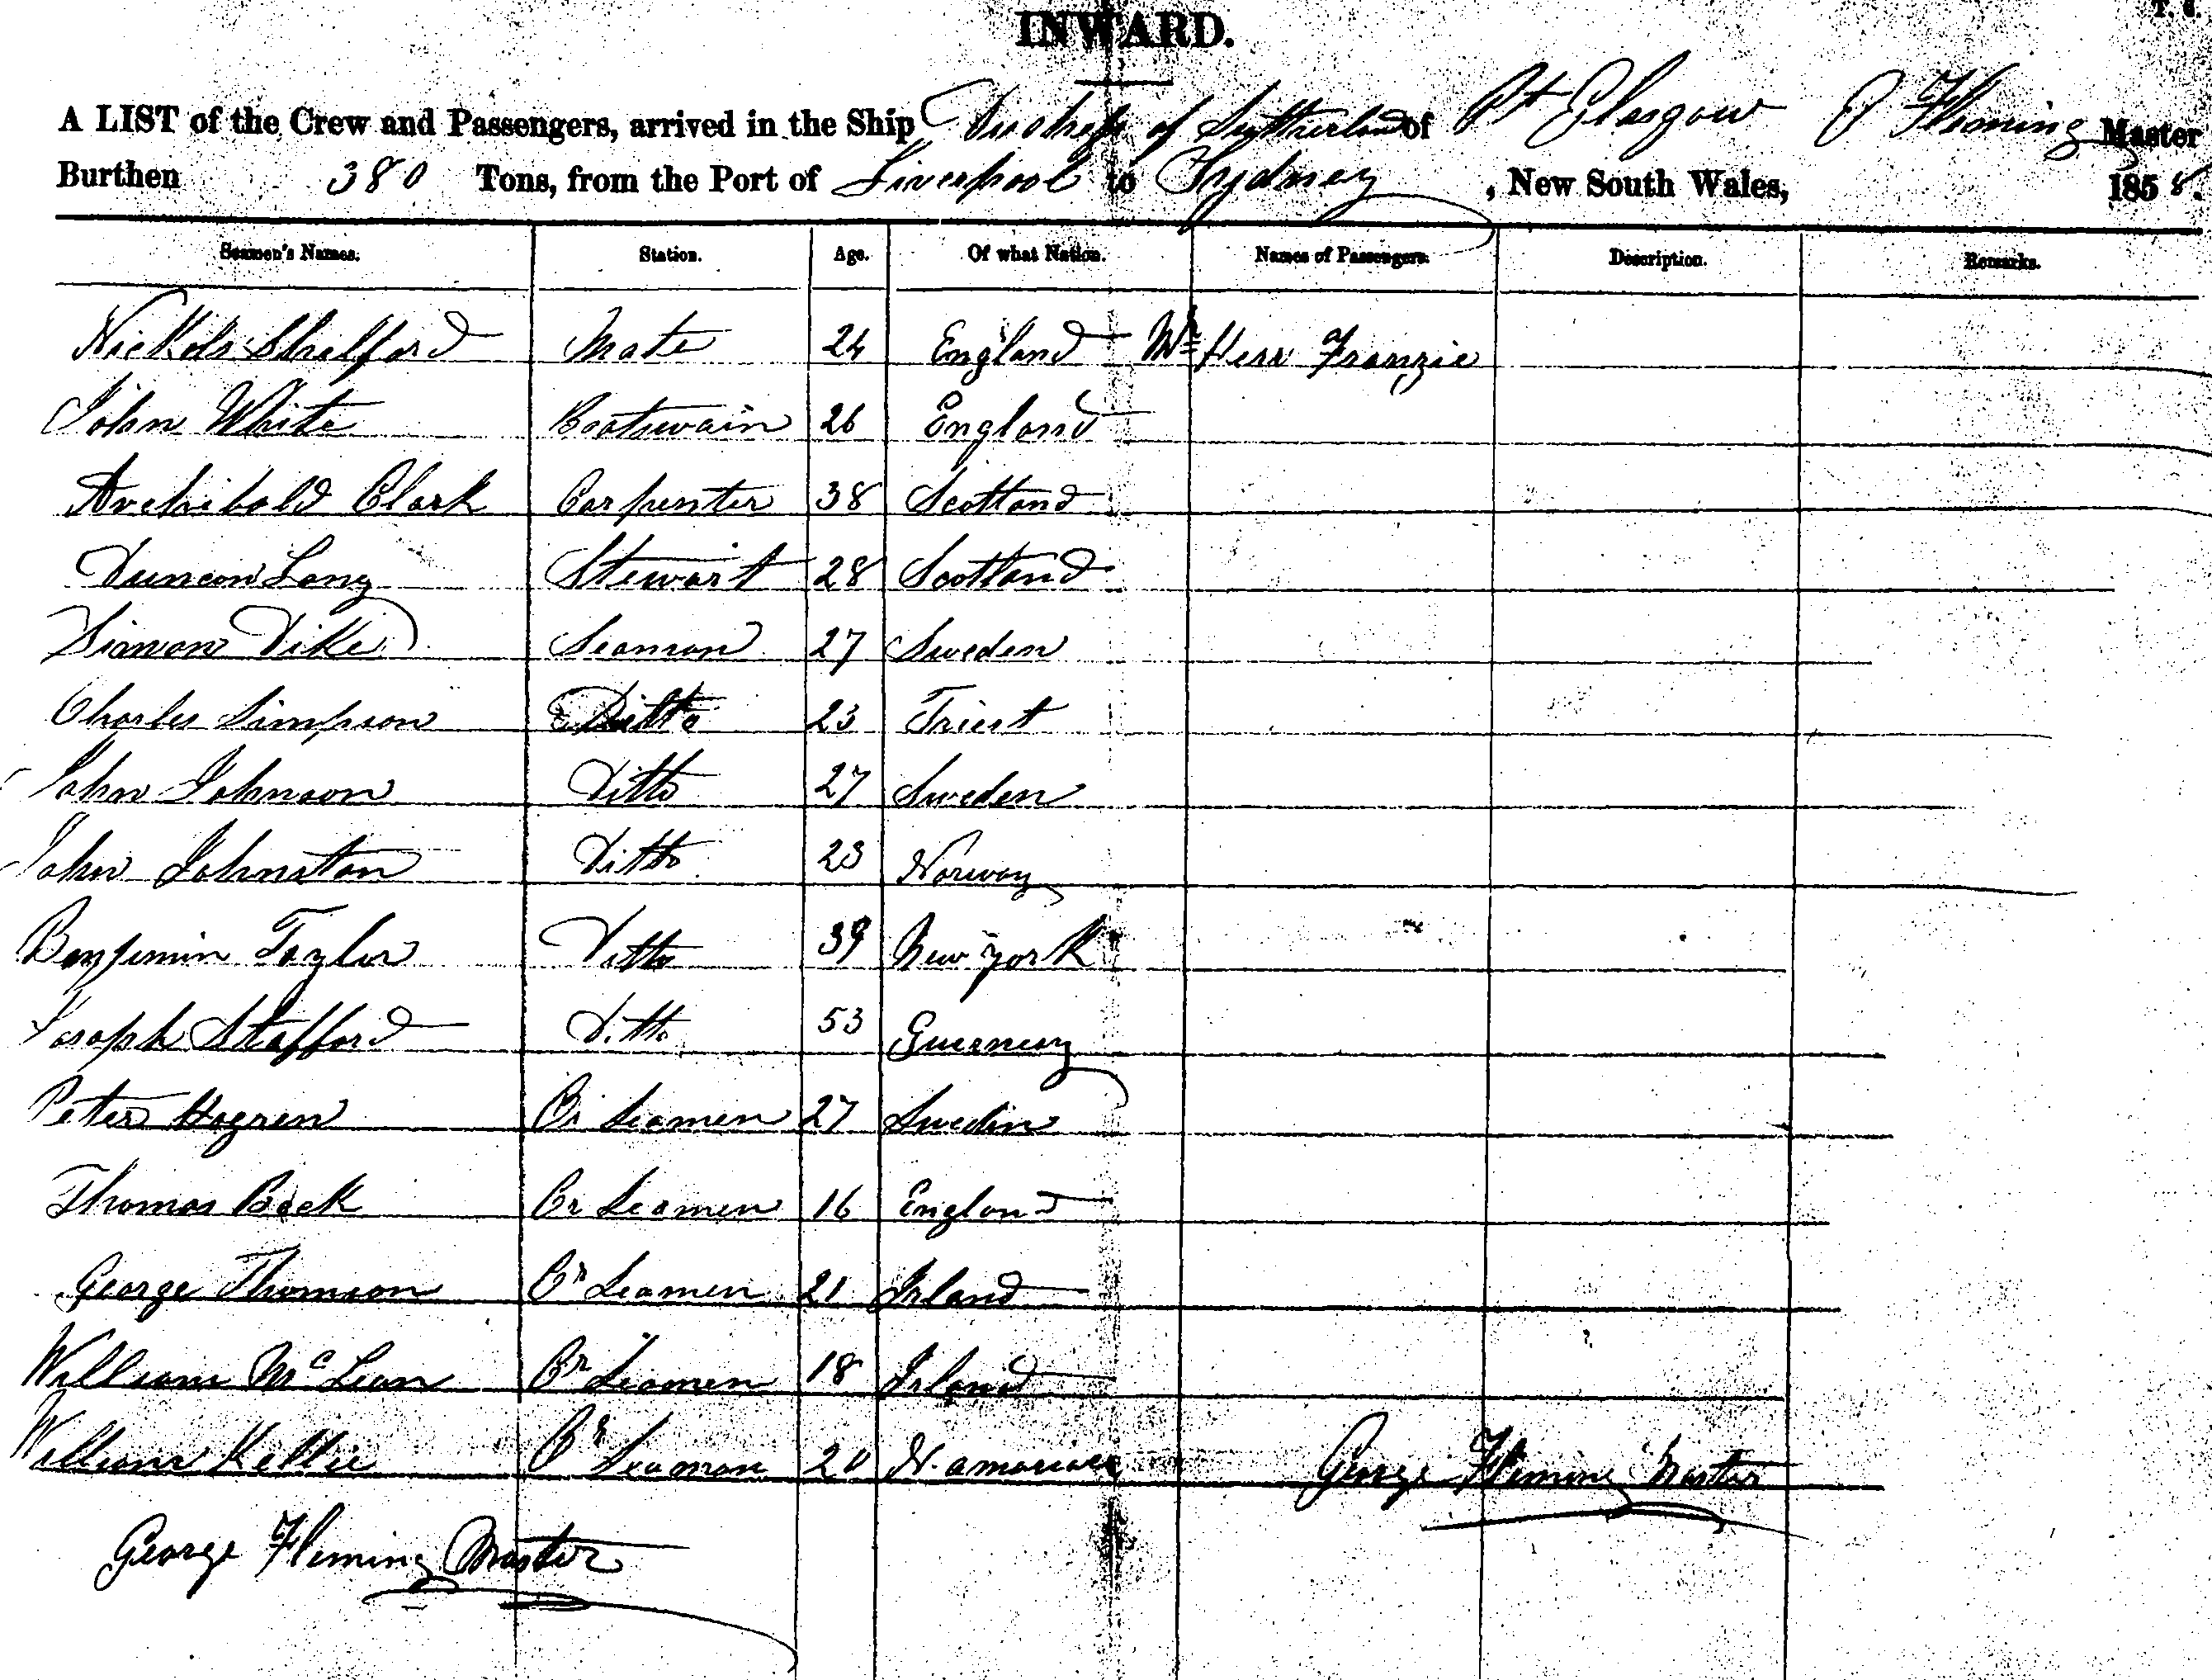 T. C.
INWARD.
A LIST of the Crew and Passengers, arrived in the Ship Duchess of Sutherland of Pt Glasgow G Fleming Master
Burthen 380 Tons, from the Port of Liverpool to Sydney, New South Wales, 1858.
Seamen's Names. Station. Age. Of what Nation. Names of Passengers. Description. Remarks.
Mate 24 England Mr Herr Franzie
John White Boatswain 26 England
Archibald Clark Carpenter 38 Scotland
Duncan Lang Stewart 28 Scotland
Simon Dike Seaman 27 Sweden
Charles Simpson Ditto 23 Triest
John Johnson Ditto 27 Sweden
John Johnston Ditto 23 Norway
Benjimin Taylor Ditto 39 New york
Joseph Stafford Ditto 53 Guernsey
Peter Hogren Or Seamen 27 Sweden
Thomas Beck Or Seamen 16 England
George Thomson Or Seamen 21 Irland
William McLean Or Seamen 18 Irland
William Kellie Or Seaman 20 George Fleming Master
George Fleming Master